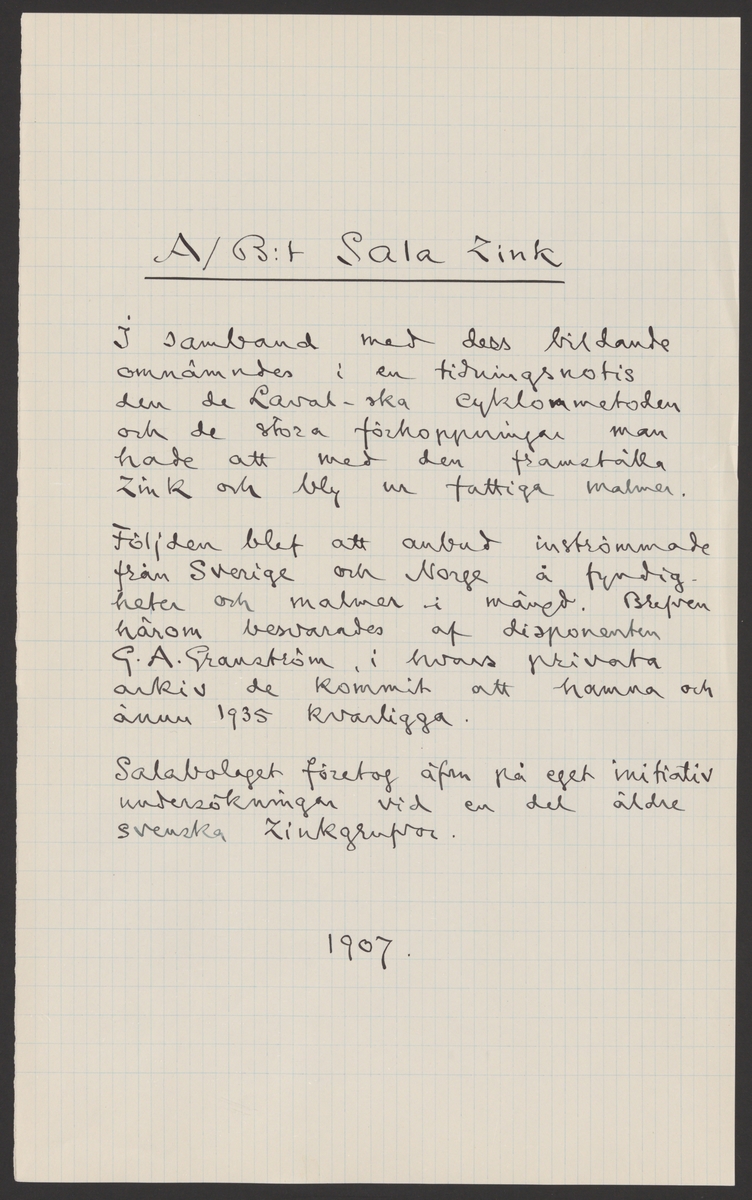 A/B:t Sala Zink
I samband med dess bildande
omnämndes i en tidningsnotis
den de Laval-ska cyklonmetoden
och de stora förhoppningar man
hade att med den framställa
zink och bly ur fattiga malmer.
Följden blef att anbud inströmmade
från Sverige och Norge å fyndig-
heter och malmer i mängd. Brefven
härom besvarades af disponenten
G. A. Granström, i hvars privata
arkiv de kommit att hamna och
ännu 1935 kvarligga.
Salabolaget företog äfven på eget initiativ
undersökningar vid en del äldre
svenska zinkgrufvor.
1907.